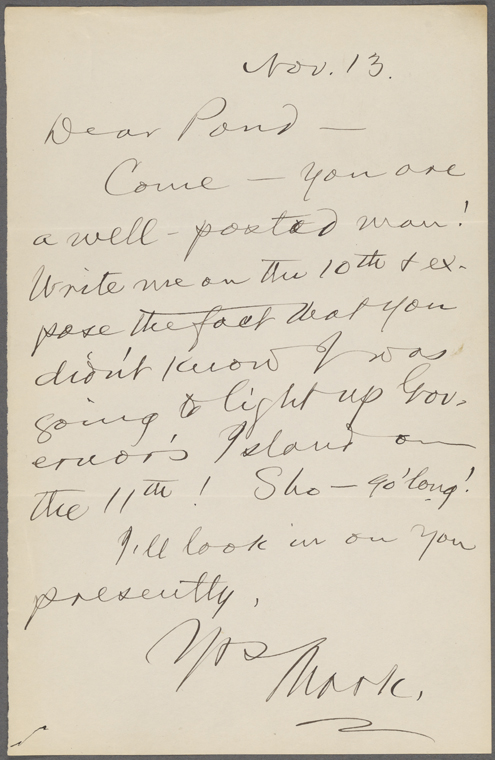 Nov. 13.
Dear Pond —
Come — you are
a well-posted man!
Write me on the 10th & ex-
pose the fact that you
didn't know I was
going to light up Gov-
ernor's Island on
the 11th! Sho — go 'long!
I'll look in on you
presently.
Yrs
Mark.